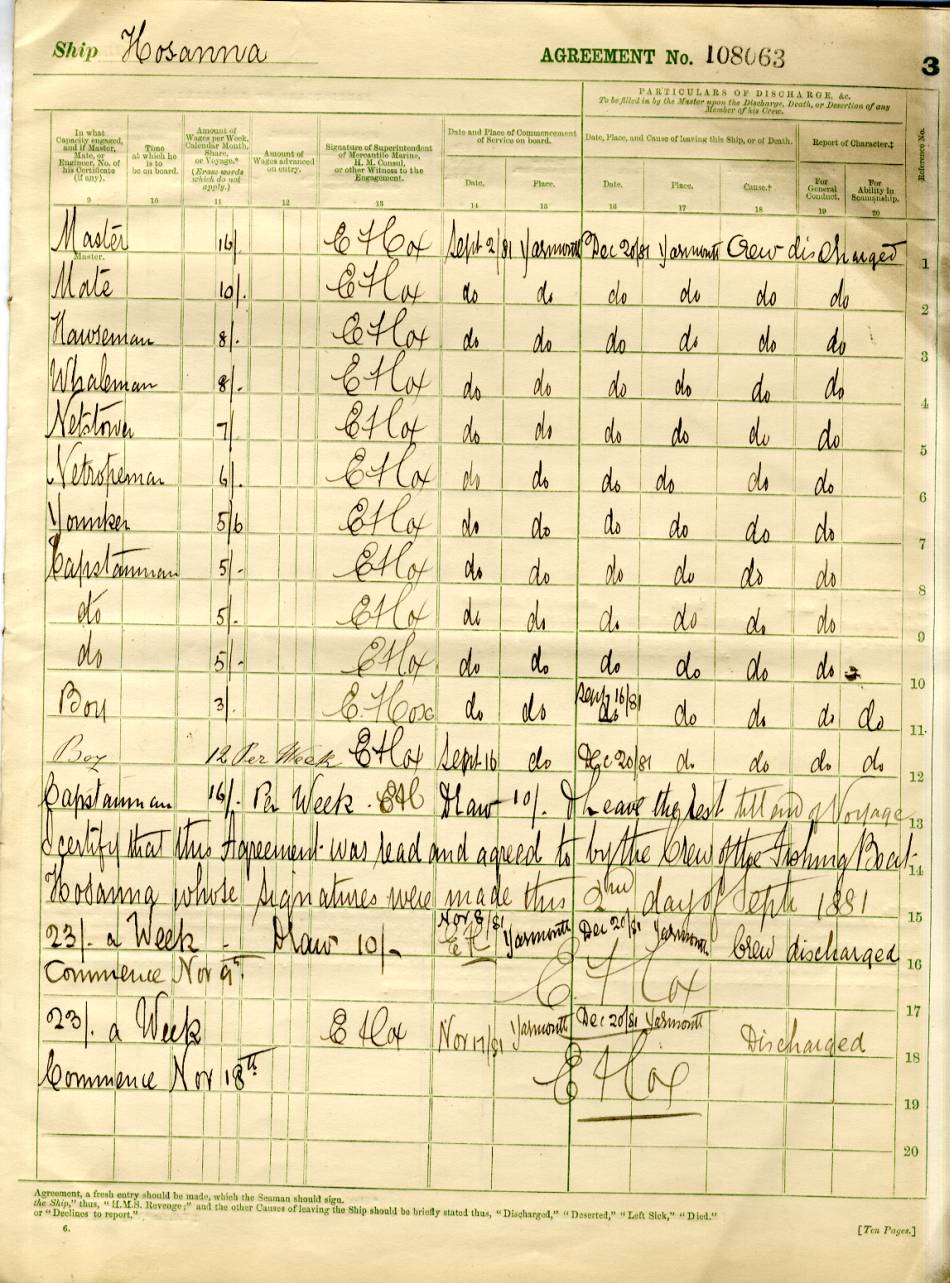 Ship Hosanna AGREEMENT No. 108063 3
PARTICULARS OF DISCHARGE, &c.
To be filled in by the Master upon the Discharge, Death, or Desertion of any Member of his Crew.
In what Capacity engaged, and if Master, Mate, or Engineer, No. of his Certificate (if any). Time at which he is to be on board. Amount of Wages per Week, Calendar Month, Share, or Voyage.* (Erase words which do not apply.) Amount of Wages advanced on entry. Signature of Superintendent of Mercantile Marine, H. M. Consul, or other Witness to the Engagement. Date and Place of Commencement of Service on board. Date, Place, and Cause of leaving this Ship, or of Death. Report of Character.‡ Reference No.
Date. Place. Date. Place. Cause.† For General Conduct. For Ability in Seamanship.
9 10 11 12 13 14 15 16 17 18 19 20
Master 16/ E Hox Sept 2/81 Yarmouth Dec 20/81 Yarmouth Crew discharged 1
Master.
Mate 10/. E Hox do do do do do do 2
Hawseman 8/. E Hox do do do do do do 3
Whaleman 8/. E Hox do do do do do do 4
Netstower 7/. E Hox do do do do do do 5
Netropeman 6/. E Hox do do do do do do 6
Younker 5/6 E Hox do do do do do do 7
Capstanman 5/- E Hox do do do do do do 8
do 5/. E Hox do do do do do do 9
do 5/- E Hox do do do do do do 10
Boy 3/. E. Hox do do Sept 16/81 do do do do 11
Boy 12 Per Week E Hox Sept 16 do Dec 20/81 do do do do 12
Capstanman 16/. Per Week. EH Draw 10/. & Leave the rest till end of Voyage 13
I certify that this Agreement was read and agreed to by the Crew of the Fishing Boat 14
Hosanna whose signatures were made this 2nd day of Septr 1881 15
23/. a Week - Draw 10/- Nov 8/81 EH Yarmouth Dec 20/81 Yarmouth Crew discharged 16
Commence Nov 9th E Hox 17
23/. a Week E Hox Nov 17/81 Yarmouth Dec 20/81 Yarmouth Discharged 18
Commence Nov 18th E Hox 19
20
Agreement, a fresh entry should be made, which the Seaman should sign.
the Ship," thus, "H.M.S. Revenge;" and the other Causes of leaving the Ship should be briefly stated thus, "Discharged," "Deserted," "Left Sick," "Died."
or "Declines to report."
6. [Ten Pages.]